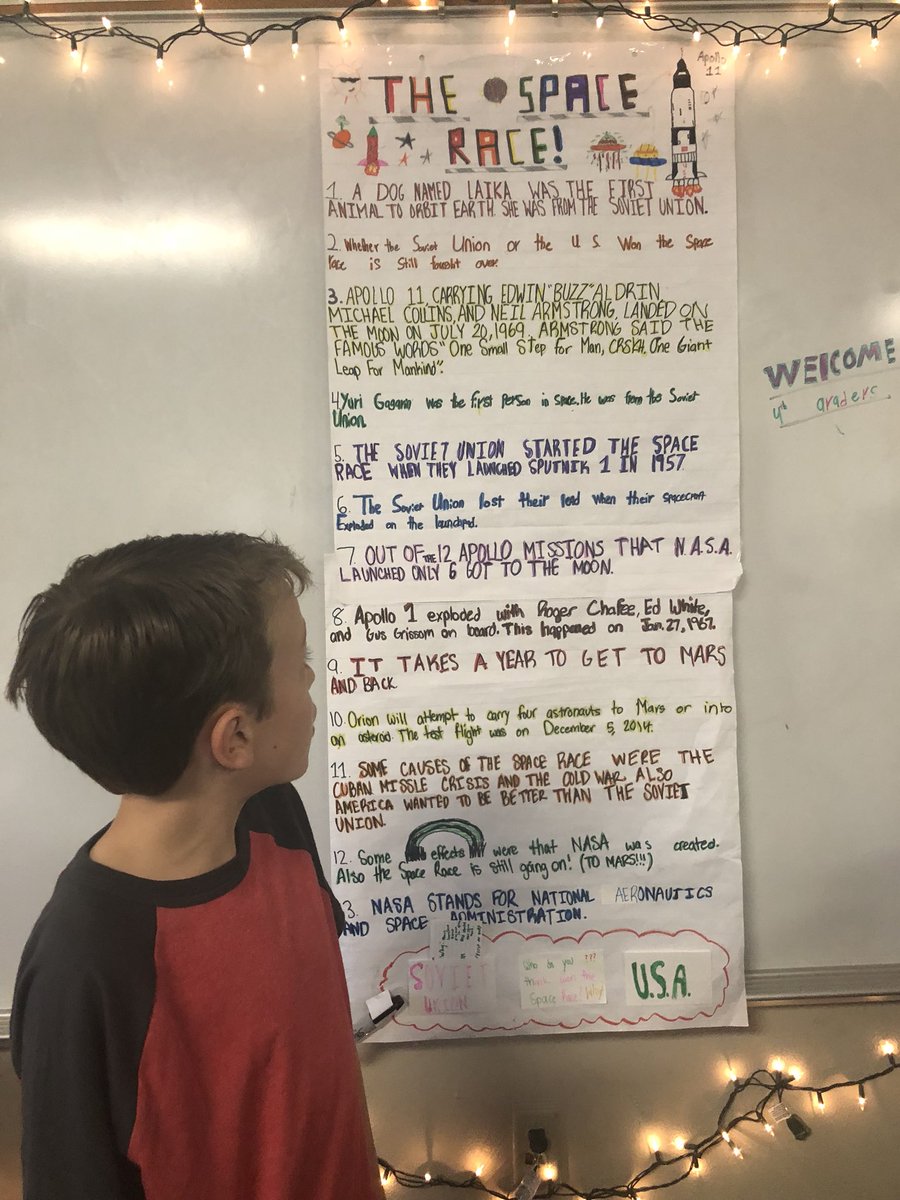 Apollo
11
THE SPACE
RACE!
1. A DOG NAMED LAIKA WAS THE FIRST
ANIMAL TO ORBIT EARTH. SHE WAS FROM THE SOVIET UNION.
2. Whether the Soviet Union or the U.S. Won the Space
Race is Still fought over.
3. APOLLO 11, CARRYING EDWIN "BUZZ" ALDRIN
MICHAEL COLLINS, AND NEIL ARMSTRONG, LANDED ON
THE MOON ON JULY 20, 1969. ARMSTRONG SAID THE
FAMOUS WORDS "One Small Step for Man, CRSKH, One Giant
Leap For Mankind".
4. Yuri Gagarin was the first Person in Space. He was from the Soviet
Union.
5. THE SOVIET UNION STARTED THE SPACE
RACE WHEN THEY LAUNCHED SPUTNIK 1 IN 1957
6. The Soviet Union lost their lead when their spacecraft
Exploded on the launchpad.
7. OUT OF THE 12 APOLLO MISSIONS THAT N.A.S.A.
LAUNCHED ONLY 6 GOT TO THE MOON.
8. Apollo 1 exploded with Roger Chafee, Ed White,
and Gus Grissom on board. This happened on Jan. 27, 1967.
9. IT TAKES A YEAR TO GET TO MARS
AND BACK
10. Orion will attempt to carry four astronauts to Mars or into
an asteroid. The test flight was on December 5, 2014.
11. SOME CAUSES OF THE SPACE RACE WERE THE
CUBAN MISSLE CRISIS AND THE COLD WAR. ALSO
AMERICA WANTED TO BE BETTER THAN THE SOVIET
UNION.
12. Some effects were that NASA was created.
Also the Space Race is still going on! (TO MARS!!!)
3. NASA STANDS FOR NATIONAL AERONAUTICS
AND SPACE ADMINISTRATION.
SOVIET
UNION
Who do you ???
think won the
Space Race? Why?
U.S.A.
WELCOME
4th graders